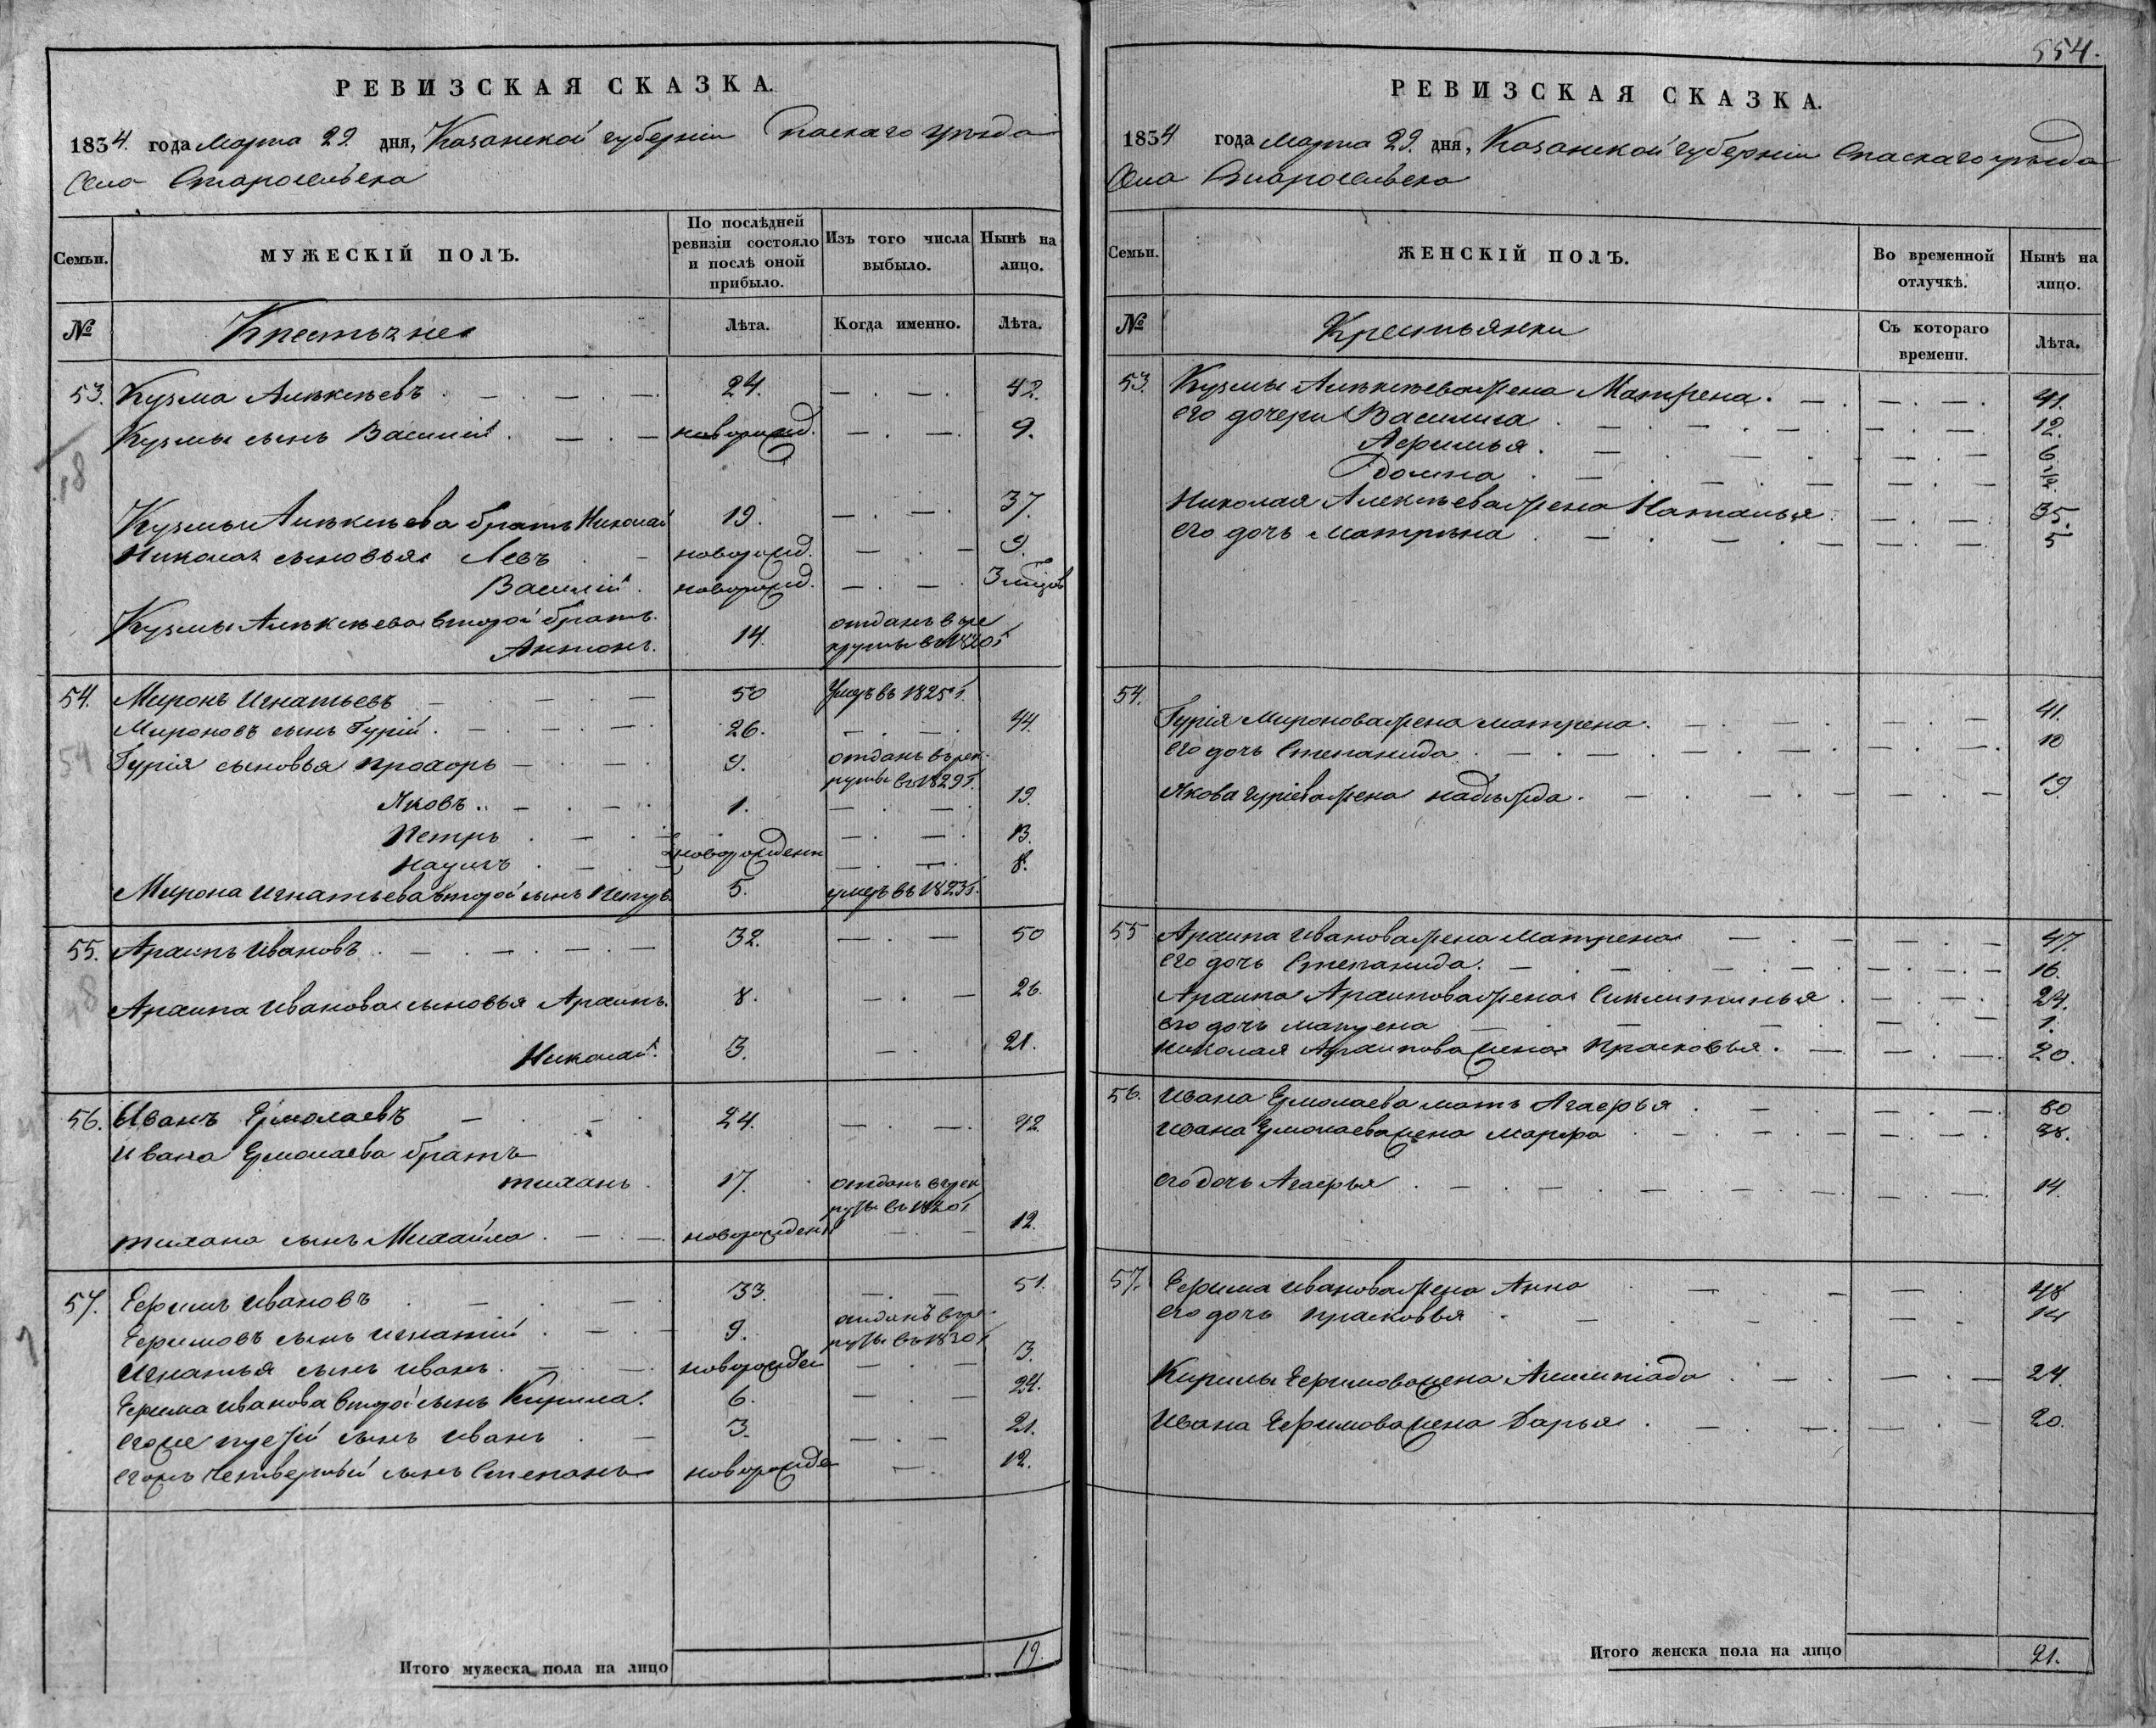 РЕВИЗСКАЯ СКАЗКА.
1834. года Марта 29. дня, Казанской губерніи Спаскаго уѣзда
Села
Семьи.
МУЖЕСКІЙ ПОЛЪ.
По послѣдней ревизіи состояло и послѣ оной прибыло.
Изъ того числа выбыло.
Нынѣ на лицо.
№
Крестьяне
Лѣта.
Когда именно.
Лѣта.
53. Кузма Алексѣевъ . — . — . — . 24. — . — . 42.
Кузмы сынъ Василій . — . — новорожд. — . — . 9.
18
Кузмы Алексѣева братъ Николай 19. — . — . 37.
Николая сыновья Левъ — новорожд. — . — 9.
Василій . новорожд. — . — . 3 мѣсяцовъ
Кузмы Алексѣева второй братъ
Антонъ. 14. отданъ в ре
круты въ 1820 г
54. Миронъ Игнатьевъ — . — . — 50 Умеръ въ 1825 г.
Мироновъ сынъ Гурій . — . — . — . 26. — . — . 44.
54
Гурія сыновья Прохоръ — . — . 9. отданъ въ рек-
руты въ 1829 г.
Яковъ . . — . — . 1. — . — . 19.
Петръ . — . — . — . 13.
новорожденн
Наумъ . — . — . — . 8.
Мирона Игнатьева второй сынъ Петръ. 5. умеръ въ 1823 г.
55. Архипъ Ивановъ . — . — . — . — 32. — . — 50
18
Архипа Иванова сыновья Архипъ. 8. — . — 26.
Николай. 3. — . 21.
56. Иванъ Ермолаевъ — . — . 24. — . — . 42.
Ивана Ермолаева братъ
Тихонъ . 17. отданъ въ рек
руты въ 1820 г
Тихона сынъ Михайла . — . — . новорожден — . — 12.
57. Ефимъ Ивановъ . — . — . 33. — . — 51.
Ефимовъ сынъ Игнатій . — . — 9. отданъ въ ре-
круты въ 1830 г
Игнатья сынъ Иванъ . — . — . новорожден — . — 3.
Ефима Иванова второй сынъ Кирила. 6. — . — 24.
его же третій сынъ Иванъ . — 3. — . — 21.
егожъ четвертый сынъ Степанъ новорожде — . 12.
Итого мужеска пола на лицо 19.
554.
РЕВИЗСКАЯ СКАЗКА.
1834 года Марта 29. дня, Казанской губерніи Спаскаго уѣзда
Села
Семьи.
ЖЕНСКІЙ ПОЛЪ.
Во временной отлучкѣ.
Нынѣ на лицо.
№
Крестьянки
Съ котораго времени.
Лѣта.
53. Кузмы Алексѣева жена Матрена. — . — . — . 41.
его дочери Василиса . — . — . — . — . — . 12.
Афимья . — . — . — . — 6.
Домна . — . — . — . — ½.
Николая Алексѣева жена Наталья . — . — . 35.
его дочь Матрѣна . — . — . — . — . 5
54.
Гурія Миронова жена Матрена . — . — . — . — 41.
его дочь Степанида . — . — . — . — . 10
Якова Гуріева жена Надѣжда . — . — . — . — 19
55 Архипа Иванова жена Матрена — . — . — 47.
его дочь Степанида. — . — . — . — . — 16.
Архипа Архипова жена . — . — . 24.
его дочь Матрена — . — . — . — . — 1.
Николая Архипова жена Прасковья . — . — . — . 20.
56. Ивана Ермолаева мать Агафья . — . — . — . 80
Ивана Ермолаева жена Марфа . — . — . — . — . 38.
его дочь Агафья . — . — . — . — . — . 14.
57. Ефима Иванова жена Анна . — . — . — . 48
его дочь Прасковья . — . — . — . — 14
Кирилы Ефимова жена . — . — . — 24
Ивана Ефимова жена Дарья . — . — . — . — 20.
Итого женска пола на лицо 21.